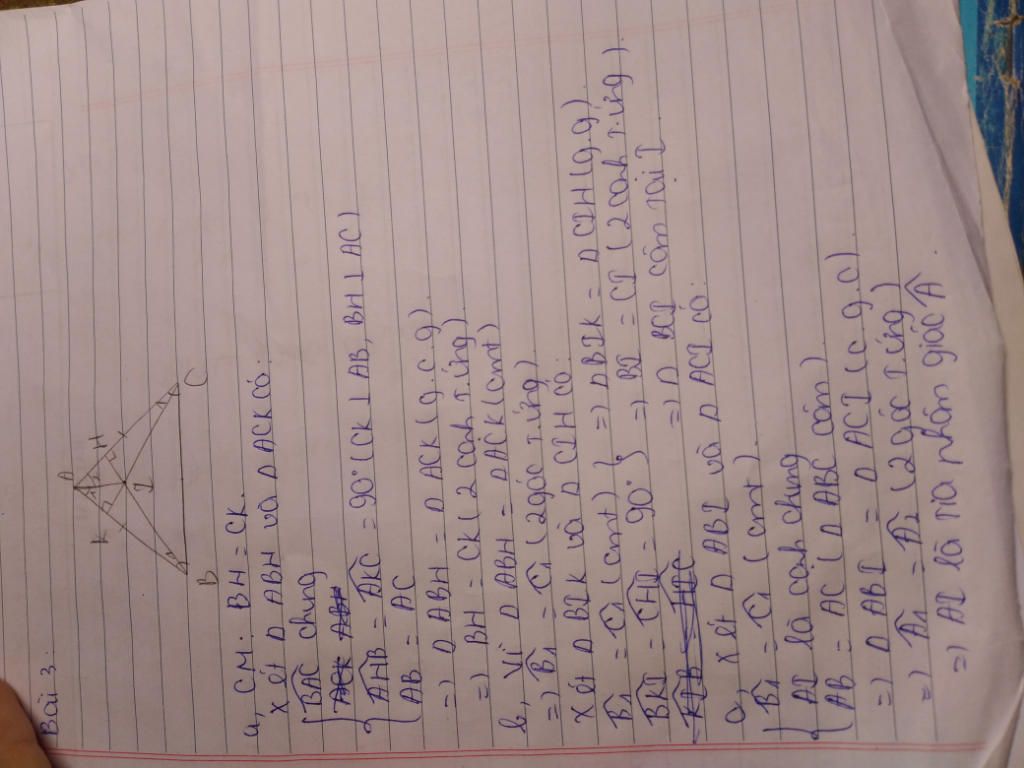 Bài 3:
A
K
H
I
B
C
a, CM: BH = CK.
Xét Δ ABH và Δ ACK có:
BAC chung
AHB = AKC = 90° (CK ⊥ AB, BH ⊥ AC)
AB = AC
=) Δ ABH = Δ ACK (g.c.g).
=) BH = CK (2 cạnh T.ứng).
b, Vì Δ ABH = Δ ACK (cmt)
=) B1 = C1 (2góc T.ứng)
Xét Δ BIK và Δ CIH có:
B1 = C1 (cmt) } =) Δ BIK = Δ CIH (g.g).
BKI = CHI = 90° } =) BI = CI (2 cạnh T.ứng).
=) Δ BCI cân tại I.
a, Xét Δ ABI và Δ ACI có:
B1 = C1 (cmt).
AI là cạnh chung
AB = AC (Δ ABC cân).
=) Δ ABI = Δ ACI (c.g.c)
=) A1 = A2 (2 góc T.ứng)
=) AI là tia phân giác A.